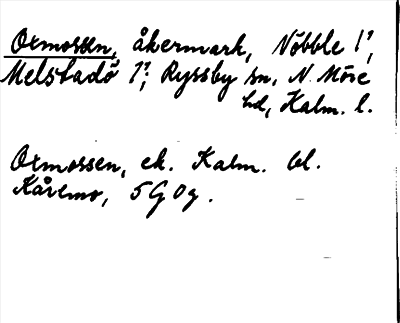 Oxmossen, åkermark, Nöbble 1?,
Melstadö 1?; Ryssby sn, N. Möre
hd, Kalm. l.
Oxmossen, ek. Kalm. bl.
Kåremo, 5G 0g.